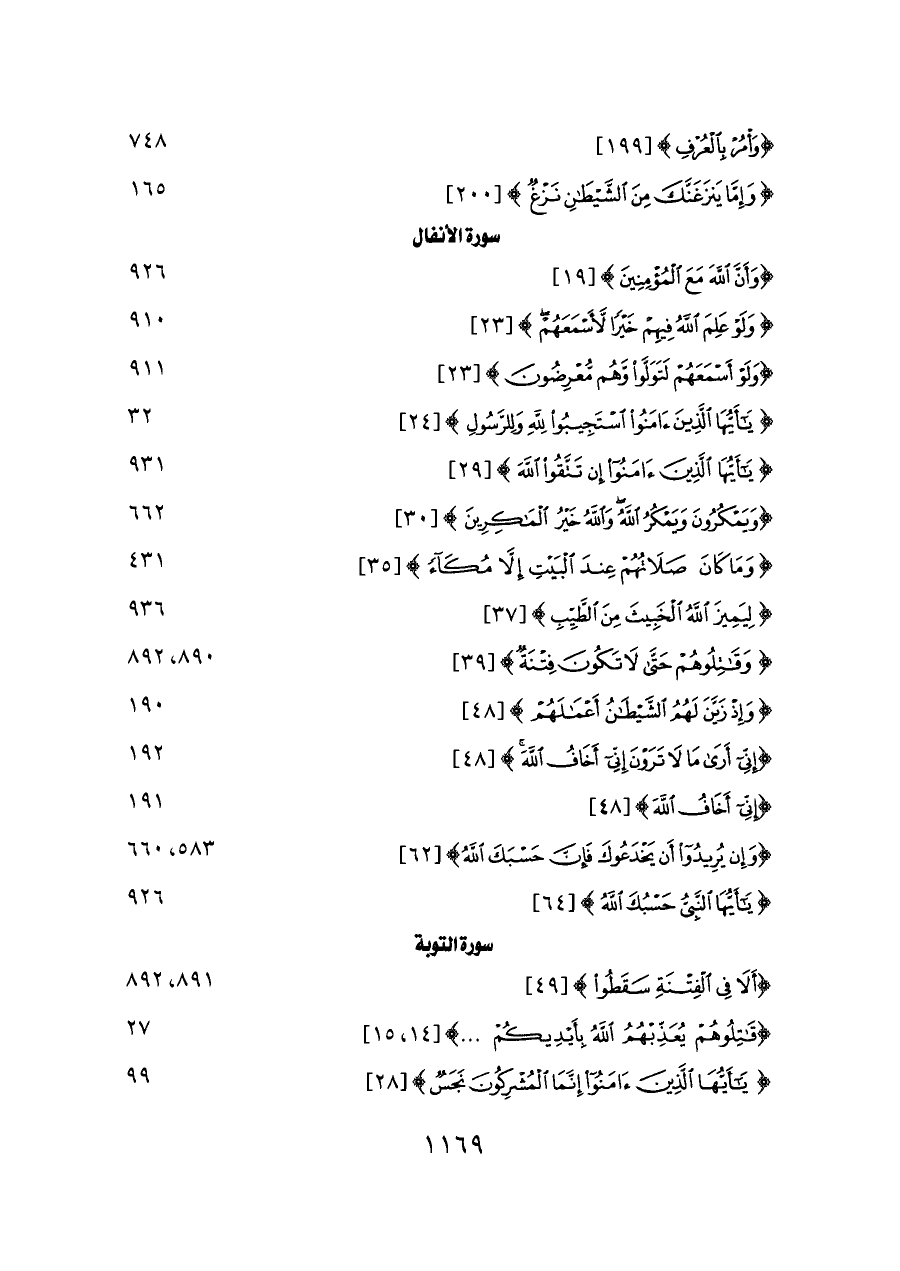 ﴿وَأْمُرْ بِالْعُرْفِ﴾ [١٩٩] ٧٤٨
﴿وَإِمَّا يَنزَغَنَّكَ مِنَ الشَّيْطَٰنِ نَزْغٌ﴾ [٢٠٠] ١٦٥
سورة الأنفال
﴿وَأَنَّ اللَّهَ مَعَ الْمُؤْمِنِينَ﴾ [١٩] ٩٢٦
﴿وَلَوْ عَلِمَ اللَّهُ فِيهِمْ خَيْرًا لَّأَسْمَعَهُمْ ۖ﴾ [٢٣] ٩١٠
﴿وَلَوْ أَسْمَعَهُمْ لَتَوَلَّوا۟ وَّهُم مُّعْرِضُونَ﴾ [٢٣] ٩١١
﴿يَٰٓأَيُّهَا الَّذِينَ ءَامَنُوا۟ اسْتَجِيبُوا۟ لِلَّهِ وَلِلرَّسُولِ﴾ [٢٤] ٣٢
﴿يَٰٓأَيُّهَا الَّذِينَ ءَامَنُوٓا۟ إِن تَتَّقُوا۟ اللَّهَ﴾ [٢٩] ٩٣١
﴿وَيَمْكُرُونَ وَيَمْكُرُ اللَّهُ ۖ وَاللَّهُ خَيْرُ الْمَٰكِرِينَ﴾ [٣٠] ٦٦٢
﴿وَمَا كَانَ صَلَاتُهُمْ عِندَ الْبَيْتِ إِلَّا مُكَآءً﴾ [٣٥] ٤٣١
﴿لِيَمِيزَ اللَّهُ الْخَبِيثَ مِنَ الطَّيِّبِ﴾ [٣٧] ٩٣٦
﴿وَقَٰتِلُوهُمْ حَتَّىٰ لَا تَكُونَ فِتْنَةٌ﴾ [٣٩] ٨٩٠، ٨٩٢
﴿وَإِذْ زَيَّنَ لَهُمُ الشَّيْطَٰنُ أَعْمَٰلَهُمْ﴾ [٤٨] ١٩٠
﴿إِنِّىٓ أَرَىٰ مَا لَا تَرَوْنَ إِنِّىٓ أَخَافُ اللَّهَ ۚ﴾ [٤٨] ١٩٢
﴿إِنِّىٓ أَخَافُ اللَّهَ﴾ [٤٨] ١٩١
﴿وَإِن يُرِيدُوٓا۟ أَن يَخْدَعُوكَ فَإِنَّ حَسْبَكَ اللَّهُ﴾ [٦٢] ٥٨٣، ٦٦٠
﴿يَٰٓأَيُّهَا النَّبِىُّ حَسْبُكَ اللَّهُ﴾ [٦٤] ٩٢٦
سورة التوبة
﴿أَلَا فِى الْفِتْنَةِ سَقَطُوا۟﴾ [٤٩] ٨٩١، ٨٩٢
﴿قَٰتِلُوهُمْ يُعَذِّبْهُمُ اللَّهُ بِأَيْدِيكُمْ ...﴾ [١٤، ١٥] ٢٧
﴿يَٰٓأَيُّهَا الَّذِينَ ءَامَنُوٓا۟ إِنَّمَا الْمُشْرِكُونَ نَجَسٌ﴾ [٢٨] ٩٩
١١٦٩